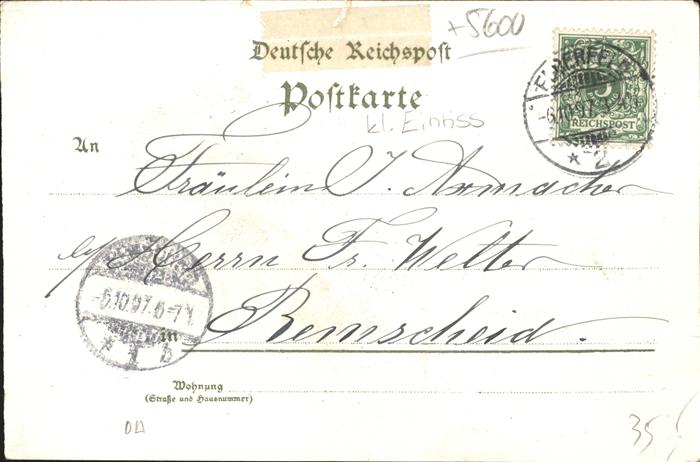 +5600
Deutsche Reichspost
Postkarte
kl. Einriss
ELBERFELD
-6.10.97.
5
REICHSPOST
* 2
An
Fräulein J. Armacher
b/ Herrn Fr. Welter
-6.10.97.6-7
* 1 b
in Remscheid.
Wohnung
(Straße und Hausnummer)
35,-